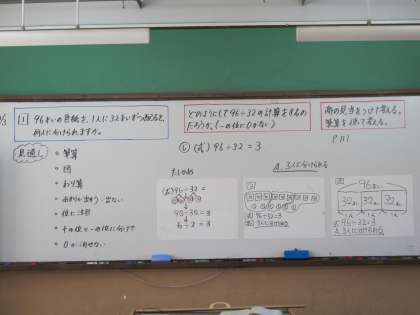 1 96まいの色紙を、1人に32まいずつ配ると、
何人に分けられますか。
どのようにして96÷32の計算をするの
だろうか。(一の位に0がない)
商の見当をつけて考える。
筆算を使って考える。
P111
見通し
・筆算
・図
・わり算
・位に注目
・十の位と一の位に分けて
・0が消せない
(式) 96÷32=3
A. 3人に分けられる
たしかめ
(式) 96÷32=
90÷30=3
6÷2=3
図
(式) 96÷32=3
(答え) 3人に分けられる
図
96まい
32まい 32まい 32まい
式 96÷32=3
A. 3人に分けられる